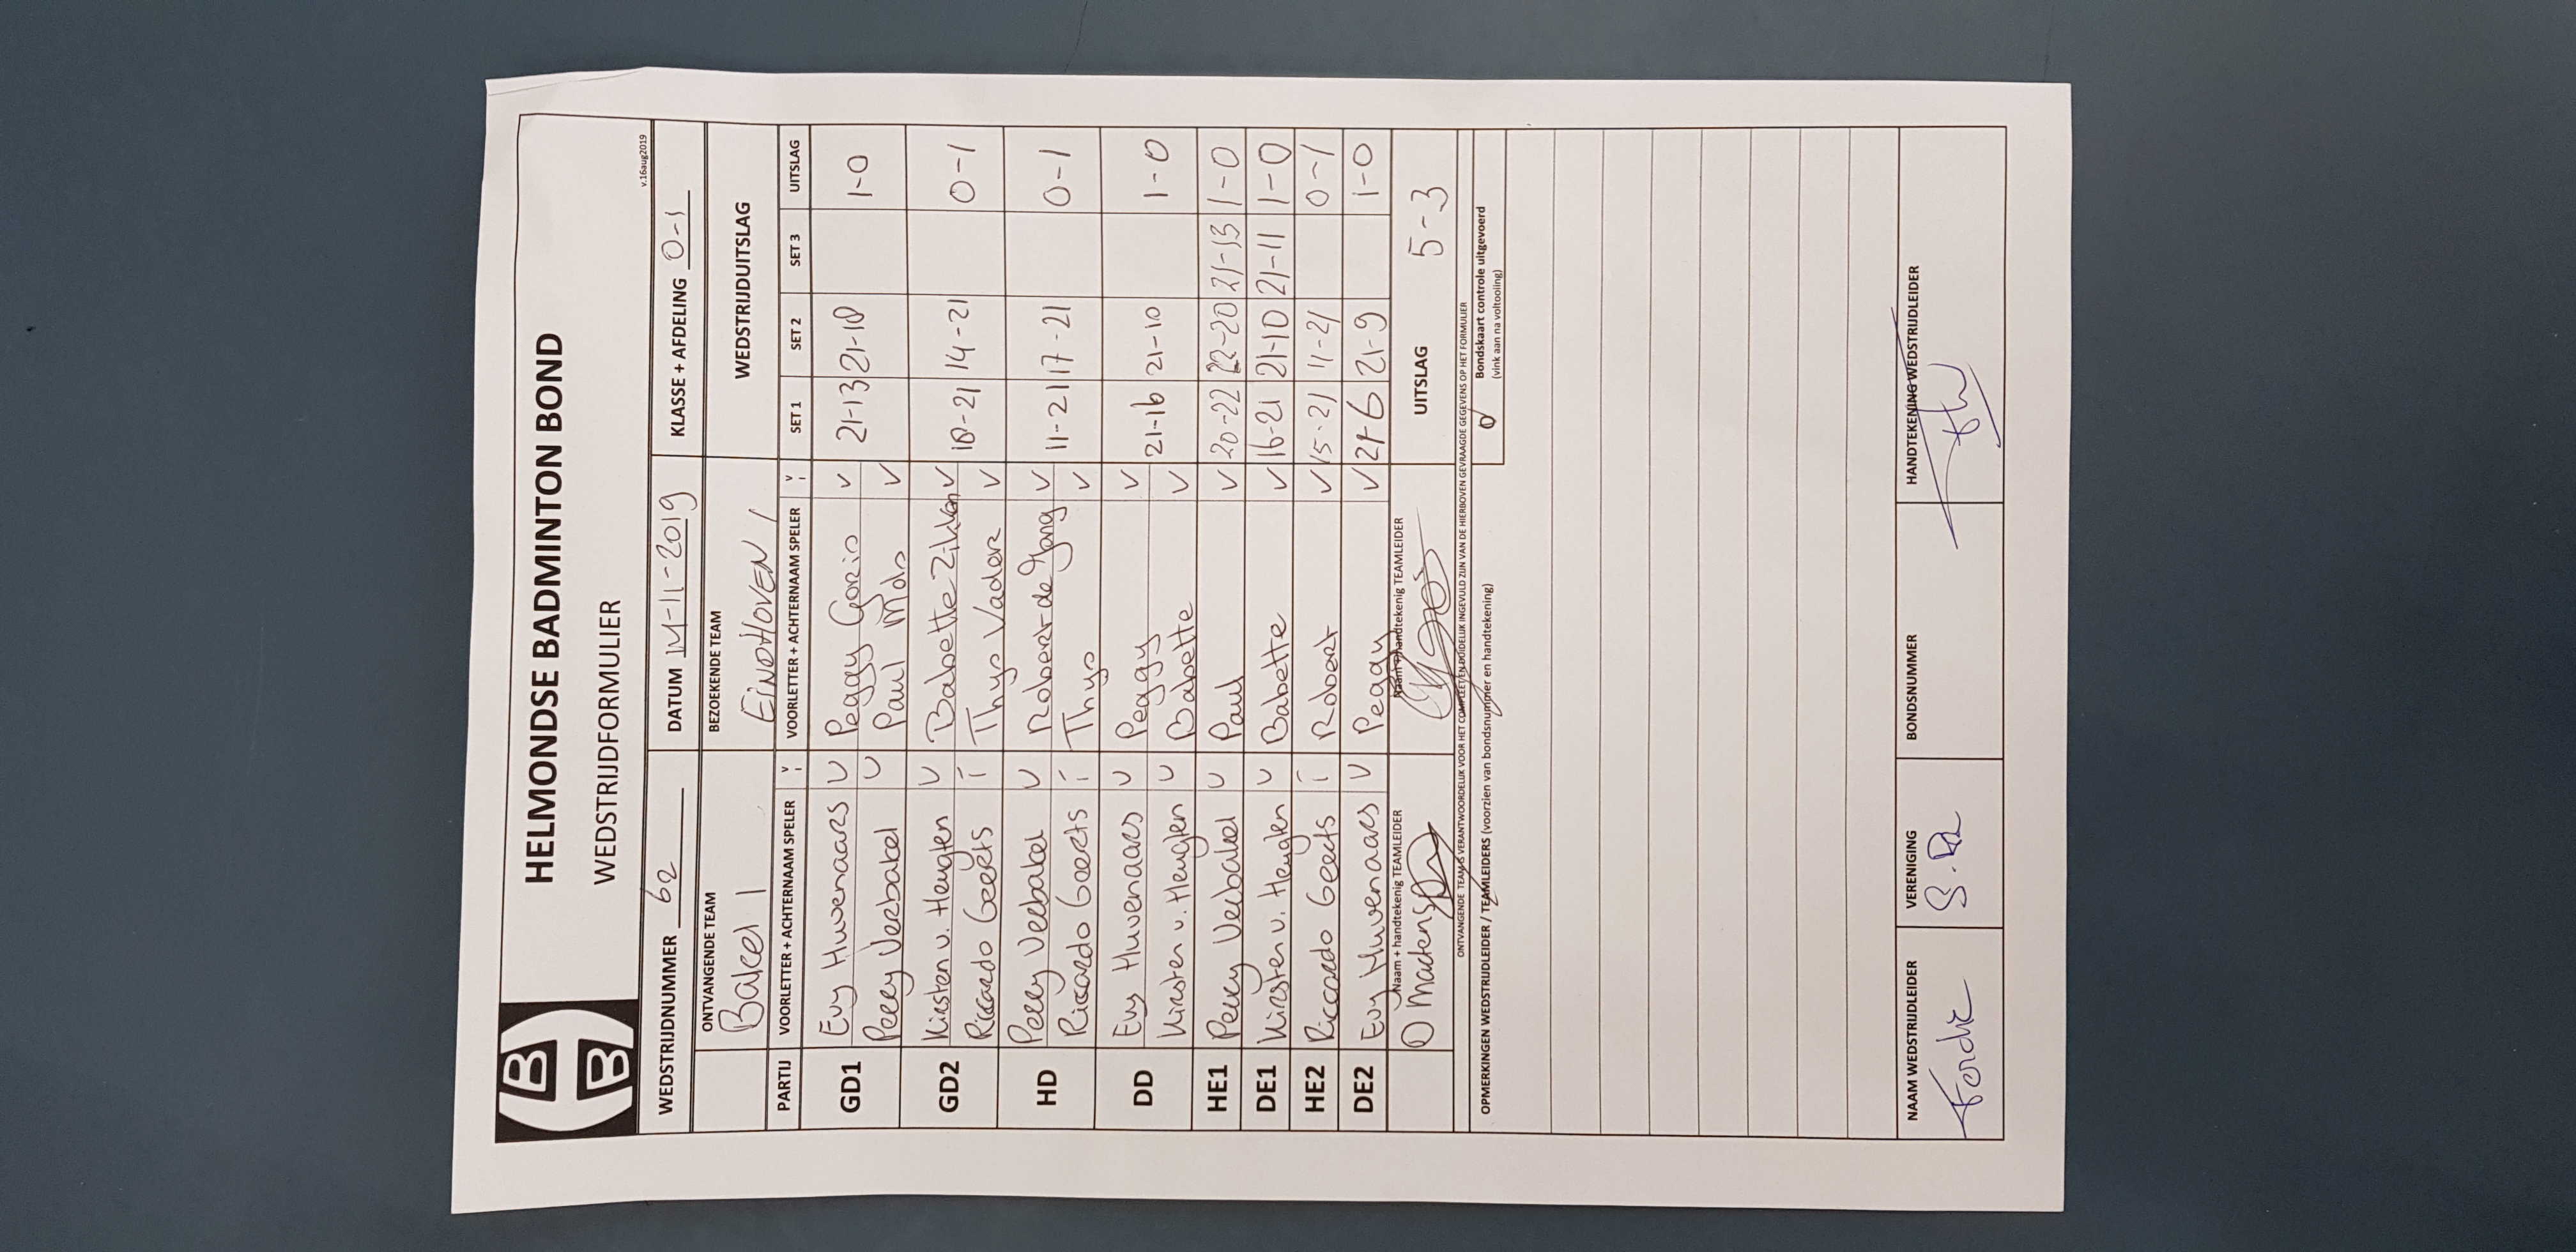 HELMONDSE BADMINTON BOND
WEDSTRIJDFORMULIER
v.16aug2019
WEDSTRIJDNUMMER 62 DATUM 14-11-2019 KLASSE + AFDELING 0-1
ONTVANGENDE TEAM BEZOEKENDE TEAM WEDSTRIJDUITSLAG
Bakel 1 EINDHOVEN 1
PARTIJ VOORLETTER + ACHTERNAAM SPELER V I VOORLETTER + ACHTERNAAM SPELER V I SET 1 SET 2 SET 3 UITSLAG
GD1 Evy Huwenaars V Peggy V 21-13 21-18 1-0
Perry Verbakel V Paul V
GD2 Kirsten v. Heugten V Babette V 18-21 14-21 0-1
Riccardo Geerts i Thys Vader V
HD Perry Verbakel V Robert de Jong V 11-21 17-21 0-1
Riccardo Geerts i Thys V
DD Evy Huwenaars V Peggy V 21-16 21-10 1-0
Kirsten v. Heugten V Babette V
HE1 Perry Verbakel V Paul V 20-22 22-20 21-13 1-0
DE1 Kirsten v. Heugten V Babette V 16-21 21-10 21-11 1-0
HE2 Riccardo Geerts i Robert V 15-21 11-21 0-1
DE2 Evy Huwenaars V Peggy V 21-6 21-9 1-0
Naam + handtekenig TEAMLEIDER Naam + handtekenig TEAMLEIDER UITSLAG 5-3
ONTVANGENDE TEAM IS VERANTWOORDELIJK VOOR HET COMPLEET EN DUIDELIJK INGEVULD ZIJN VAN DE HIERBOVEN GEVRAAGDE GEGEVENS OP HET FORMULIER
OPMERKINGEN WEDSTRIJDLEIDER / TEAMLEIDERS (voorzien van bondsnummer en handtekening)
Bondskaart controle uitgevoerd
(vink aan na voltooiing)
NAAM WEDSTRIJDLEIDER VERENIGING BONDSNUMMER HANDTEKENING WEDSTRIJDLEIDER